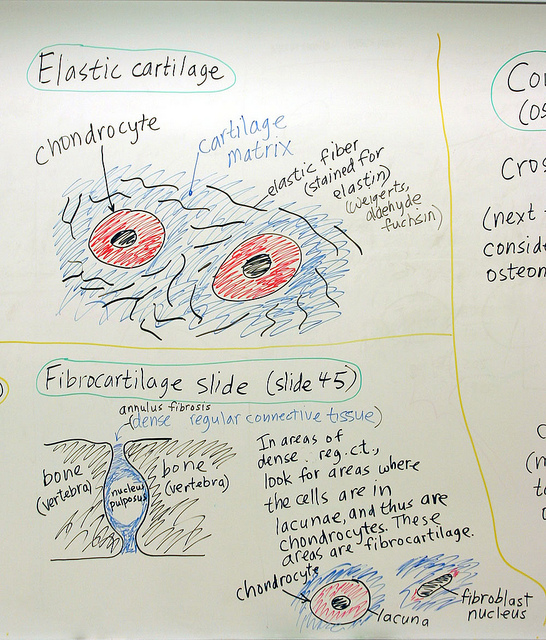 Elastic cartilage
chondrocyte
cartilage
matrix
elastic fiber
(stained for
elastin)
(weigerts,
aldehyde
fuchsin)
Fibrocartilage slide (slide 45)
annulus fibrosis
(dense regular connective tissue)
bone
(vertebra)
nucleus
pulposus
bone
(vertebra)
In areas of
dense reg. c.t.,
look for areas where
the cells are in
lacunae, and thus are
chondrocytes. These
areas are fibrocartilage.
chondrocyte
lacuna
fibroblast
nucleus
Co
(os
cros
(next
consid
osteon